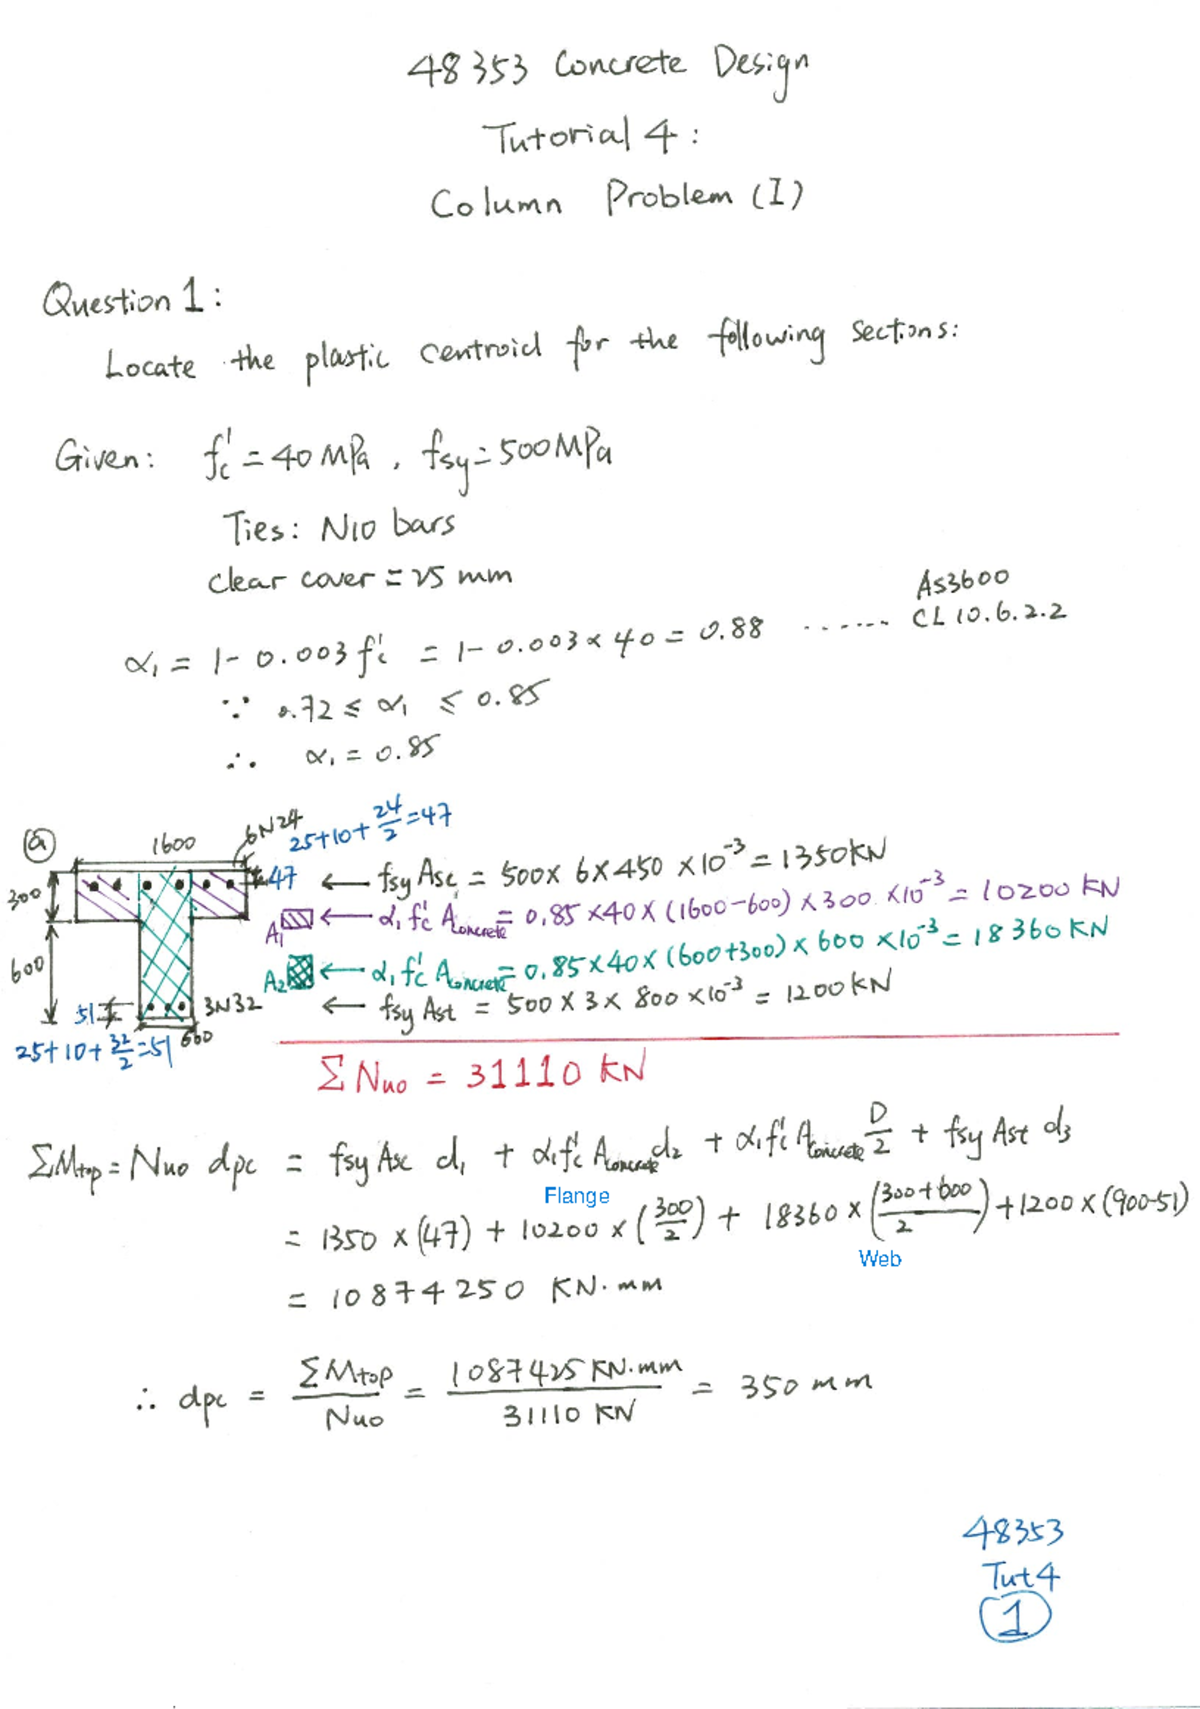 48353 Concrete Design
Tutorial 4:
Column Problem (I)
Question 1:
Locate the plastic centroid for the following sections:
Given: f'c = 40 MPa, fsy = 500 MPa
Ties: N10 bars
clear cover = 25 mm
AS3600
α₁ = 1 - 0.003 f'c = 1 - 0.003 × 40 = 0.88 ...... CL 10.6.2.2
∵ 0.72 ≤ α₁ ≤ 0.85
∴ α₁ = 0.85
(a) 1600 6N24 25+10+24/2=47
300 47 ← fsy Asc = 500 × 6 × 450 × 10⁻³ = 1350 KN
A₁ ← α₁ f'c Aconcrete = 0.85 × 40 × (1600-600) × 300 × 10⁻³ = 10200 KN
600 A₂ ← α₁ f'c Aconcrete = 0.85 × 40 × (600+300) × 600 × 10⁻³ = 18360 KN
51 3N32 ← fsy Ast = 500 × 3 × 800 × 10⁻³ = 1200 KN
25+10+32/2=51 600
Σ Nuo = 31110 KN
ΣMtop = Nuo dpc = fsy Asc d₁ + α₁f'c Aconcrete d₂ + α₁f'c Aconcrete D/2 + fsy Ast d₃
Flange
= 1350 × (47) + 10200 × (300/2) + 18360 × ((300+600)/2) + 1200 × (900-51)
Web
= 10874250 KN·mm
∴ dpc = ΣMtop/Nuo = 1087425 KN·mm/31110 KN = 350 mm
48353
Tut 4
1